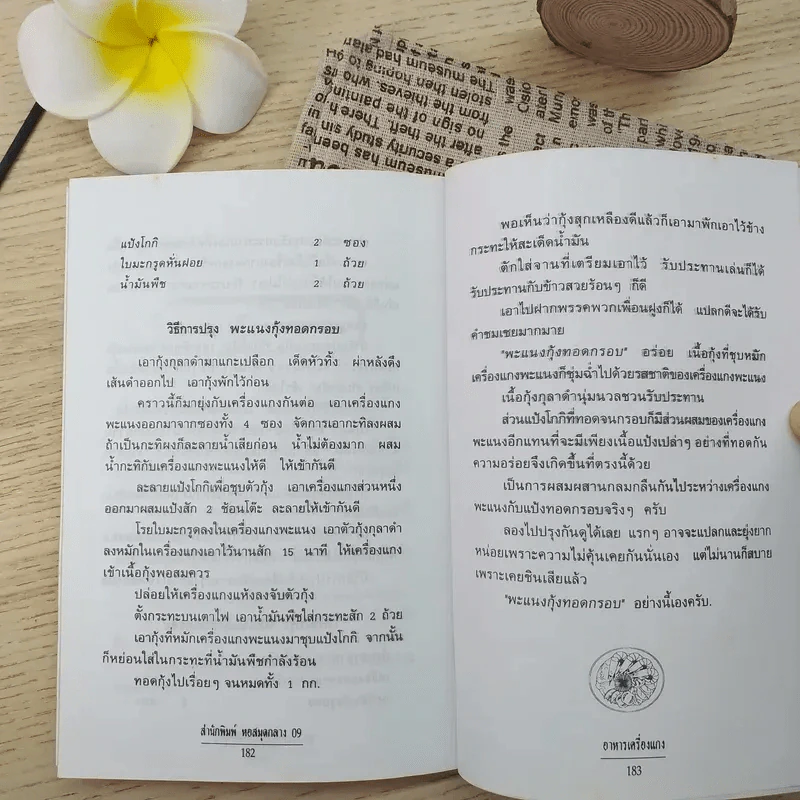 แป้งโกกิ 2 ซอง
ใบมะกรูดหั่นฝอย 1 ถ้วย
น้ำมันพืช 2 ถ้วย
วิธีการปรุง พะแนงกุ้งทอดกรอบ
เอากุ้งกุลาดำมาแกะเปลือก เด็ดหัวทิ้ง ผ่าหลังดึง
เส้นดำออกไป เอากุ้งพักไว้ก่อน
คราวนี้ก็มายุ่งกับเครื่องแกงกันต่อ เอาเครื่องแกง
พะแนงออกมาจากซองทั้ง 4 ซอง จัดการเอากะทิลงผสม
ถ้าเป็นกะทิผงก็ละลายน้ำเสียก่อน น้ำไม่ต้องมาก ผสม
น้ำกะทิกับเครื่องแกงพะแนงให้ดี ให้เข้ากันดี
ละลายแป้งโกกิเพื่อชุบตัวกุ้ง เอาเครื่องแกงส่วนหนึ่ง
ออกมาผสมแป้งสัก 2 ช้อนโต๊ะ ละลายให้เข้ากันดี
โรยใบมะกรูดลงในเครื่องแกงพะแนง เอาตัวกุ้งกุลาดำ
ลงหมักในเครื่องแกงเอาไว้นานสัก 15 นาที ให้เครื่องแกง
เข้าเนื้อกุ้งพอสมควร
ปล่อยให้เครื่องแกงแห้งลงจับตัวกุ้ง
ตั้งกระทะบนเตาไฟ เอาน้ำมันพืชใส่กระทะสัก 2 ถ้วย
เอากุ้งที่หมักเครื่องแกงพะแนงมาชุบแป้งโกกิ จากนั้น
ก็หย่อนใส่ในกระทะที่น้ำมันพืชกำลังร้อน
ทอดกุ้งไปเรื่อยๆ จนหมดทั้ง 1 กก.
สำนักพิมพ์ หอสมุดกลาง 09
182
พอเห็นว่ากุ้งสุกเหลืองดีแล้วก็เอามาพักเอาไว้ข้าง
กระทะให้สะเด็ดน้ำมัน
ตักใส่จานที่เตรียมเอาไว้ รับประทานเล่นก็ได้
รับประทานกับข้าวสวยร้อนๆ ก็ดี
เอาไปฝากพรรคพวกเพื่อนฝูงก็ได้ แปลกดีจะได้รับ
คำชมเชยมากมาย
"พะแนงกุ้งทอดกรอบ" อร่อย เนื้อกุ้งที่ชุบหมัก
เครื่องแกงพะแนงก็ชุ่มฉ่ำไปด้วยรสชาติของเครื่องแกงพะแนง
เนื้อกุ้งกุลาดำนุ่มนวลชวนรับประทาน
ส่วนแป้งโกกิที่ทอดจนกรอบก็มีส่วนผสมของเครื่องแกง
พะแนงอีกแทนที่จะมีเพียงเนื้อแป้งเปล่าๆ อย่างที่ทอดกัน
ความอร่อยจึงเกิดขึ้นที่ตรงนี้ด้วย
เป็นการผสมผสานกลมกลืนกันไประหว่างเครื่องแกง
พะแนงกับแป้งทอดกรอบจริงๆ ครับ
ลองไปปรุงกันดูได้เลย แรกๆ อาจจะแปลกและยุ่งยาก
หน่อยเพราะความไม่คุ้นเคยกันนั่นเอง แต่ไม่นานก็สบาย
เพราะเคยชินเสียแล้ว
"พะแนงกุ้งทอดกรอบ" อย่างนี้เองครับ.
อาหารเครื่องแกง
183